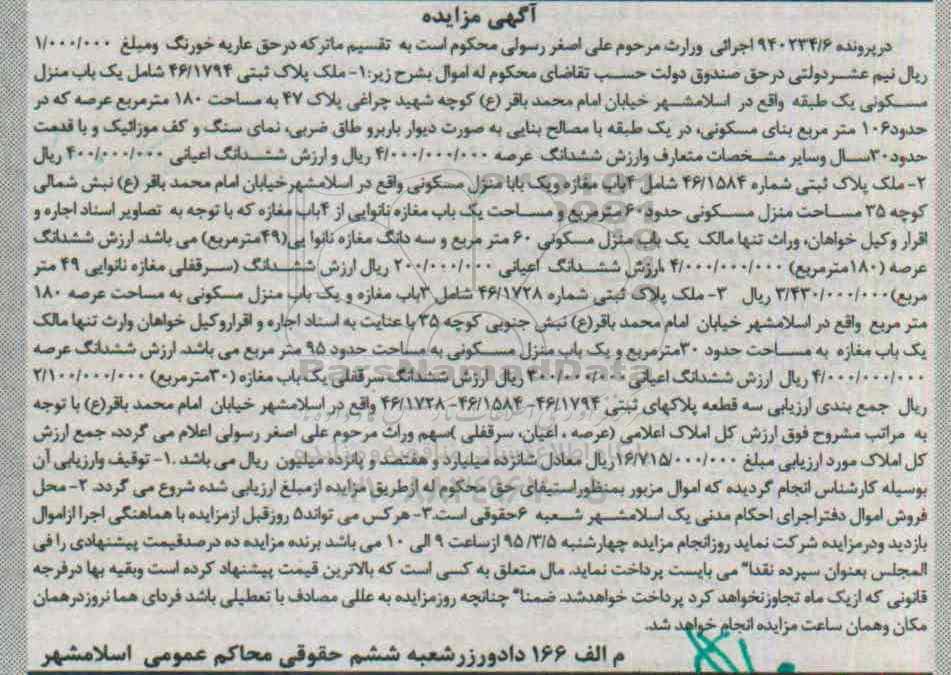 آگهی مزایده
درپرونده ۹۴۰۲۳۴/۶ اجرائی وراث مرحوم علی اصغر رسولی محکوم است به تقسیم ماترکه درحق عاریه خورنگ ومبلغ ۱/۰۰۰/۰۰۰
ریال نیم عشردولتی درحق صندوق دولت حسب تقاضای محکوم له اموال بشرح زیر:۱- ملک پلاک ثبتی ۴۶/۱۷۹۴ شامل یک باب منزل
مسکونی یک طبقه واقع در اسلامشهر خیابان امام محمد باقر (ع) کوچه شهید چراغی پلاک ۴۷ به مساحت ۱۸۰ مترمربع عرصه که در
حدود۱۰۶ متر مربع بنای مسکونی، در یک طبقه با مصالح بنایی به صورت دیوار باربرو طاق ضربی، نمای سنگ و کف موزائیک و با قدمت
حدود۳۰سال وسایر مشخصات متعارف وارزش ششدانگ عرصه ۴/۰۰۰/۰۰۰/۰۰۰ ریال و ارزش ششدانگ اعیانی ۴۰۰/۰۰۰/۰۰۰ ریال
۲- ملک پلاک ثبتی شماره ۴۶/۱۵۸۴ شامل ۴باب مغازه ویک بابا منزل مسکونی واقع در اسلامشهرخیابان امام محمد باقر (ع) نبش شمالی
کوچه ۳۵ مساحت منزل مسکونی حدود۶۰ مترمربع و مساحت یک باب مغازه نانوایی از ۴باب مغازه که با توجه به تصاویر اسناد اجاره و
اقرار وکیل خواهان، وراث تنها مالک یک باب منزل مسکونی ۶۰ متر مربع و سه دانگ مغازه نانوا یی(۴۹مترمربع) می باشد. ارزش ششدانگ
عرصه (۱۸۰مترمربع) ۴/۰۰۰/۰۰۰/۰۰۰ ،ارزش ششدانگ اعیانی ۲۰۰/۰۰۰/۰۰۰ ریال ارزش ششدانگ (سرقفلی مغازه نانوایی ۴۹ متر
مربع)۳/۴۳۰/۰۰۰/۰۰۰ ریال ۳- ملک پلاک ثبتی شماره ۴۶/۱۷۲۸ شامل ۳باب مغازه و یک باب منزل مسکونی به مساحت عرصه ۱۸۰
متر مربع واقع در اسلامشهر خیابان امام محمد باقر(ع) نبش جنوبی کوچه ۳۵ با عنایت به اسناد اجاره و اقراروکیل خواهان وارث تنها مالک
یک باب مغازه به مساحت حدود ۳۰مترمربع و یک باب منزل مسکونی به مساحت حدود ۹۵ متر مربع می باشد. ارزش ششدانگ عرصه
۴/۰۰۰/۰۰۰/۰۰۰ ریال ارزش ششدانگ اعیانی ۳۰۰/۰۰۰/۰۰۰ ریال ارزش ششدانگ سرقفلی یک باب مغازه (۳۰مترمربع) ۲/۱۰۰/۰۰۰/۰۰۰
ریال جمع بندی ارزیابی سه قطعه پلاکهای ثبتی ۴۶/۱۷۹۴- ۴۶/۱۵۸۴- ۴۶/۱۷۲۸ واقع در اسلامشهر خیابان امام محمد باقر(ع) با توجه
به مراتب مشروح فوق ارزش کل املاک اعلامی (عرصه ، اعیان، سرقفلی )سهم وراث مرحوم علی اصغر رسولی اعلام می گردد، جمع ارزش
کل املاک مورد ارزیابی مبلغ ۱۶/۷۱۵/۰۰۰/۰۰۰ریال معادل شانزده میلیارد و هفتصد و پانزده میلیون ریال می باشد .۱- توقیف وارزیابی آن
بوسیله کارشناس انجام گردیده که اموال مزبور بمنظوراستیفای حق محکوم له ازطریق مزایده ازمبلغ ارزیابی شده شروع می گردد. ۲- محل
فروش اموال دفتراجرای احکام مدنی یک اسلامشهر شعبه ۶حقوقی است.۳- هرکس می تواند۵ روزقبل ازمزایده با هماهنگی اجرا ازاموال
بازدید ودرمزایده شرکت نماید روزانجام مزایده چهارشنبه ۹۵/۳/۵ ازساعت ۹ الی ۱۰ می باشد برنده مزایده ده درصدقیمت پیشنهادی را فی
المجلس بعنوان سپرده نقدا" می بایست پرداخت نماید. مال متعلق به کسی است که بالاترین قیمت پیشنهاد کرده است وبقیه بها درفرجه
قانونی که ازیک ماه تجاوزنخواهد کرد پرداخت خواهدشد. ضمنا" چنانچه روزمزایده به عللی مصادف با تعطیلی باشد فردای هما نروزدرهمان
مکان وهمان ساعت مزایده انجام خواهد شد.
م الف ۱۶۶ دادورزرشعبه ششم حقوقی محاکم عمومی اسلامشهر
ParsNamadData